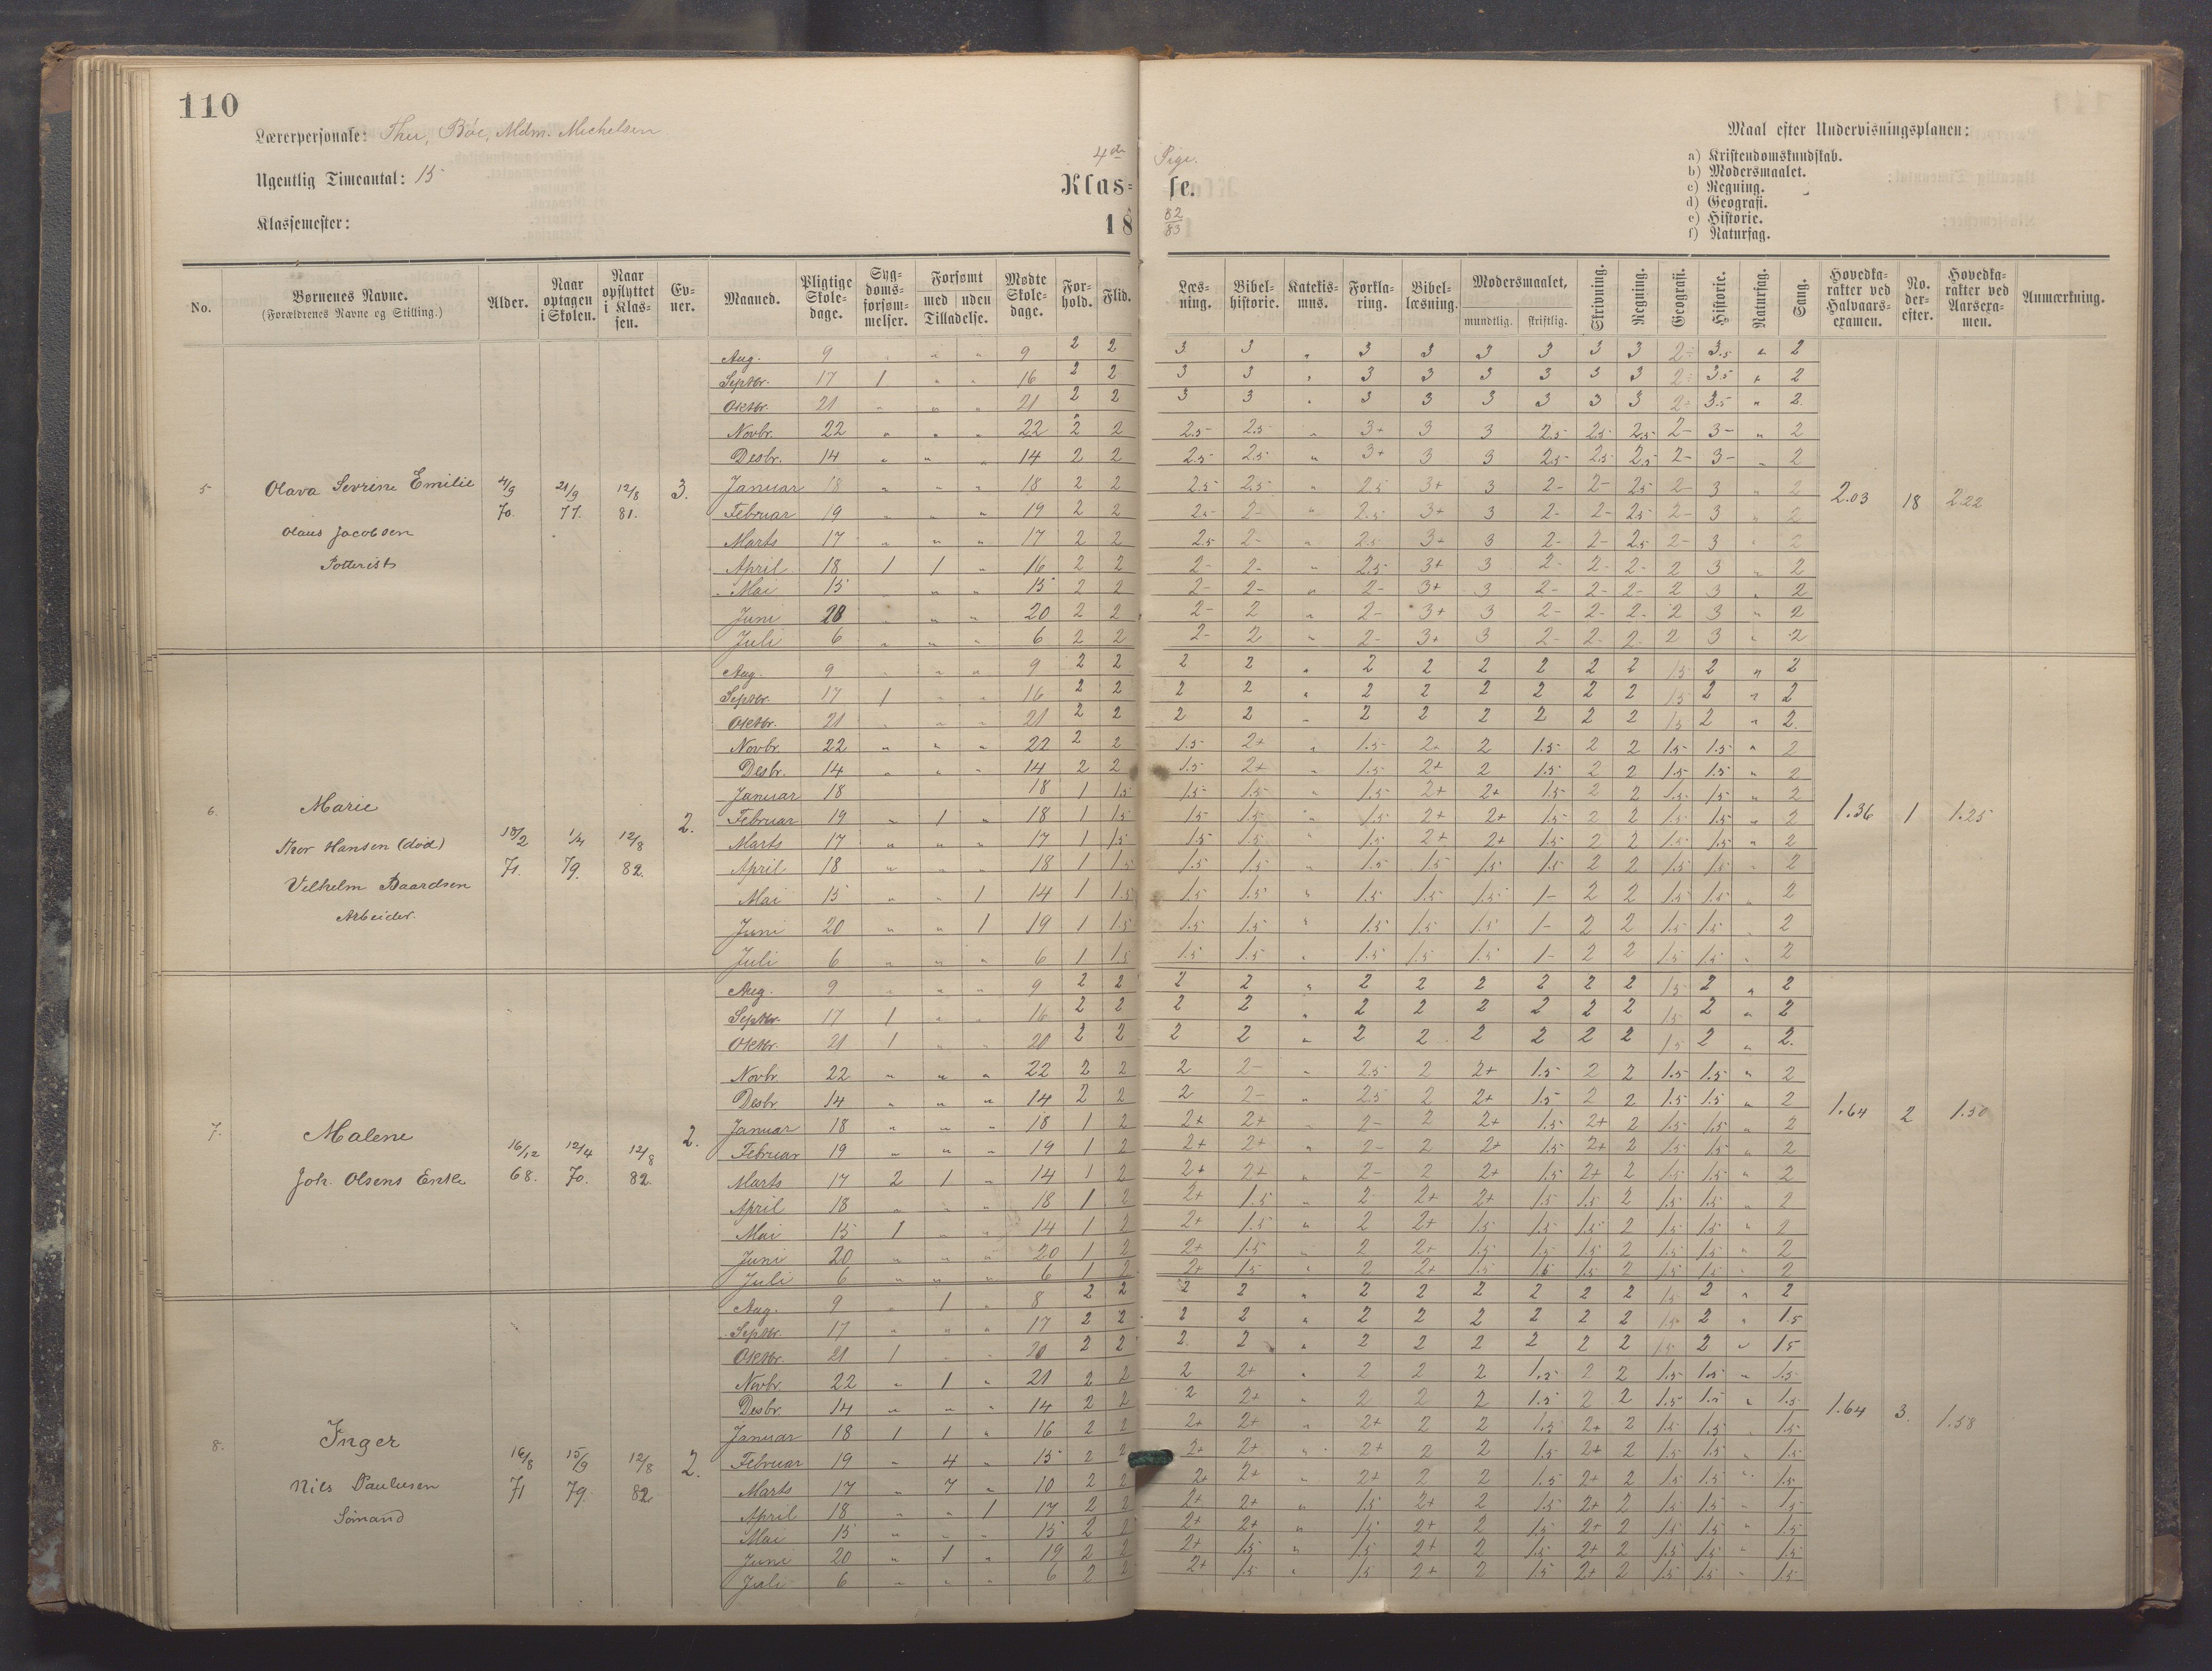 110
Lærerpersonale: Thu, Bøe, Mdm. Michelsen
Ugentlig Timeantal: 15
Klassemester:
4de Pige.
Klasse.
18 82/83
Maal efter Undervisningsplanen:
a) Kristendomskundskab.
b) Modersmaalet.
c) Regning.
d) Geografi.
e) Historie.
f) Naturfag.
No. Børnenes Navne. (Forældrenes Navne og Stilling.) Alder. Naar optagen i Skolen. Naar opflyttet i Klassen. Evner. Maaned. Pligtige Skoledage. Sygdomsforsømmelser. Forsømt med uden Tilladelse. Mødte Skoledage. Forhold. Flid. Læsning. Bibelhistorie. Katekismus. Forklaring. Bibellæsning. Modersmaalet, mundtlig. skriftlig. Skrivning. Regning. Geografi. Historie. Naturfag. Sang. Hovedkarakter ved Halvaarsexamen. No. derefter. Hovedkarakter ved Aarsexamen. Anmærkning.
5 Olava Sevrine Emilie 4/9 70. 21/9 77. 12/8 81. 3. 2.03 18 2.22
Olaus Jacobsen
Potterist
Aug. 9 " " " 9 2 2 3 3 " 3 3 3 3 3 3 2÷ 3.5 " 2
Septbr. 17 1 " " 16 2 2 3 3 " 3 3 3 3 3 3 2÷ 3.5 " 2
Oktbr. 21 " " " 21 2 2 3 3 " 3 3 3 3 3 3 2÷ 3.5 " 2
Novbr. 22 " " " 22 2 2 2.5 2.5 " 3+ 3 3 2.5 2.5 2.5 2- 3- " 2
Desbr. 14 " " " 14 2 2 2.5 2.5 " 3+ 3 3 2.5 2.5 2.5 2- 3- " 2
Januar 18 " " " 18 2 2 2.5 2.5 " 2.5 3+ 3 2- 2- 2.5 2- 3 " 2
Februar 19 " " " 19 2 2 2.5 2- " 2.5 3+ 3 2- 2- 2.5 2- 3 " 2
Marts 17 " " " 17 2 2 2.5 2- " 2.5 3+ 3 2- 2- 2.5 2- 3 " 2
April 18 1 1 " 16 2 2 2- 2- " 2.5 3+ 3 2- 2- 2- 2 3 " 2
Mai 15 " " " 15 2 2 2- 2- " 2- 3+ 3 2- 2- 2- 2 3 " 2
Juni 20 " " " 20 2 2 2- 2 " 2- 3+ 3 2- 2- 2- 2 3 " 2
Juli 6 " " " 6 2 2 2- 2 " 2- 3+ 3 2- 2- 2- 2 3 " 2
6. Marie 18/2 71. 1/4 79. 12/8 82. 2. 1.36 1 1.25
Hansen (død)
Vilhelm Baardsen
Arbeider.
Aug. 9 " " " 9 2 2 2 2 " 2 2 2 2 2 2 1.5 2 " 2
Septbr. 17 1 " " 16 2 2 2 2 " 2 2 2 2 2 2 1.5 2 " 2
Oktbr. 21 " " " 21 2 2 2 2 " 2 2 2 2 2 2 1.5 2 " 2.
Novbr. 22 " " " 22 2 2 1.5 2+ " 1.5 2+ 2 1.5 2 2 1.5 1.5 " 2
Desbr. 14 " " " 14 2 2 1.5 2+ " 1.5 2+ 2 1.5 2 2 1.5 1.5 " 2
Januar 18 18 1 1.5 1.5 1.5 " 1.5 2+ 2+ 1.5 2 2 1.5 1.5 " 2
Februar 19 " 1 " 18 1 1.5 1.5 1.5 " 1.5 2+ 2+ 1.5 2 2 1.5 1.5 " 2
Marts 17 " " " 17 1 1.5 1.5 1.5 " 1.5 2+ 2+ 1.5 2 2 1.5 1.5 " 2
April 18 " " " 18 1 1.5 1.5 1.5 " 1.5 1.5 1.5 1.5 2 2 1.5 1.5 " 2
Mai 15 " " 1 14 1 1.5 1.5 1.5 " 1.5 1.5 1.5 1- 2 2 1.5 1.5 " 2
Juni 20 " " 1 19 1 1.5 1.5 1.5 " 1.5 1.5 1.5 1- 2 2 1.5 1.5 " 2
Juli 6 " " " 6 1 1.5 1.5 1.5 " 1.5 1.5 1.5 1- 2 2 1.5 1.5 " 2
7. Malene 16/12 68. 12/4 70. 12/8 82. 2. 1.64 2 1.50
Joh. Olsens Enke
Aug. 9 " " " 9 2 2 2 2 " 2 2 2 2 2 2 1.5 2 " 2
Septbr. 17 1 " " 16 2 2 2 2 " 2 2 2 2 2 2 1.5 2 " 2
Oktbr. 21 1 " " 20 2 2 2 2 " 2 2 2 2 2 2 1.5 2 " 2.
Novbr. 22 " " " 22 2 2 2 2- " 2.5 2 2+ 1.5 2 2 1.5 1.5 " 2
Desbr. 14 " " " 14 2 2 2 2- " 2.5 2 2+ 1.5 2 2 1.5 1.5 " 2
Januar 18 " " " 18 1 2 2+ 2+ " 2- 2 2+ 1.5 2+ 2 1.5 1.5 " 2
Februar 19 " " " 19 1 2 2+ 2+ " 2- 2 2+ 1.5 2+ 2 1.5 1.5 " 2
Marts 17 2 1 " 14 1 2 2+ 2+ " 2- 2 2+ 1.5 2+ 2 1.5 1.5 " 2
April 18 " " " 18 1 2 2+ 1.5 " 2 2+ 2+ 1.5 1.5 2 1.5 1.5 " 2
Mai 15 1 " " 14 1 2 2+ 1.5 " 2 2+ 1.5 1.5 1.5 2 1.5 1.5 " 2
Juni 20 " " " 20 1 2 2+ 1.5 " 2 2+ 1.5 1.5 1.5 2 1.5 1.5 " 2
Juli 6 " " " 6 1 2 2+ 1.5 " 2 2+ 1.5 1.5 1.5 2 1.5 1.5 " 2
8. Inger 16/8 71 15/9 79. 12/8 82 2. 1.64 3. 1.58
Nils Paulusen
Sømand
Aug. 9 " 1 " 8 2 2 2 2 " 2 2 2 2 2 2 1.5 2 " 2
Septbr. 17 " " " 17 2 2 2 2 " 2 2 2 2 2 2 1.5 2 " 1.5
Oktbr. 21 1 " " 20 2 2 2. 2 " 2 2 2 2 2 2 1.5 2 " 1.5
Novbr. 22 " 1 " 21 2 2 2 2+ " 2 2 2 1.5 2 2 1.5 1.5 " 1.5
Desbr. 14 " " " 14 2 2 2 2+ " 2 2 2 1.5 2 2 1.5 1.5 " 1.5
Januar 18 1 1 " 16 2 2 2+ 2+ " 2+ 2 2 1.5 2+ 2 1.5 1.5 " 1.5
Februar 19 " 4 " 15 2 2 2+ 2+ " 2+ 2 2 1.5 2+ 2 1.5 1.5 " 1.5
Marts 17 " 7 " 10 2 2 2+ 2+ " 2+ 2 2 1.5 2+ 2 1.5 1.5 " 1.5
April 18 " " 1 17 2 2 2+ 2+ " 1.5 2+ 2 1.5 2+ 2 1.5 1.5 " 1.5
Mai 15 " " " 15 2 2 2+ 2+ " 1.5 2+ 2 1.5 2+ 2 1.5 1.5 " 1.5
Juni 20 " 1 " 19 2 2 2+ 1.5 " 1.5 2+ 2 1.5 2+ 2 1.5 1.5 " 1.5
Juli 6 " " " 6 2 2 2+ 1.5 " 1.5 2+ 2 1.5 2+ 2 1.5 1.5 " 1.5